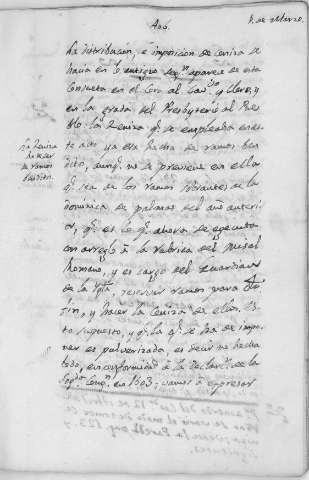 de Marzo.
La distribución, é imposicion de ceniza se
hacia en lo antiguo segn aparece de esta
Consueta en el Coro al Cavdo y Clero, y
en la grada del Presbyterio al Pue-
blo. La Zeniza q.e se empleaba en es-
te acto ya era hecha de ramos ben-
ditos, aunq.e no se previene en ella
q.e sea de los ramos sobrantes de la
dominica de palmas del año anteri-
or, q.e es lo q.e ahora se egecuta
con arreglo á la rubrica del Missal
Romano, y es cargo del
de la Ygla. reservar ramos para
fin, y hacer la ceniza de ellos. Es-
to supuesto, y q.e la q.e se ha de impo-
ner es pulverizada, es decir no hecha
lodo, en conformidad á la declaron. de la
Sagda. Congn. en 1803; vamos á expresar
La Zeniza
ha de ser
de ramos
venditos.